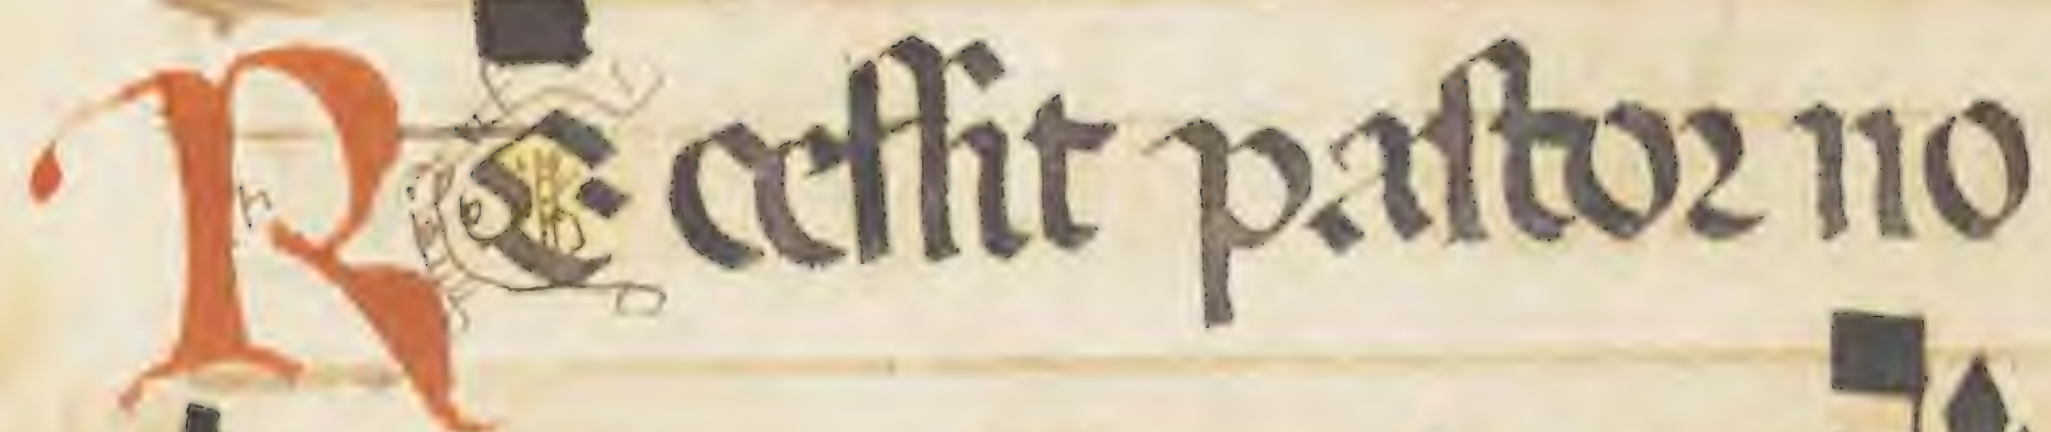 REcessit pastor no